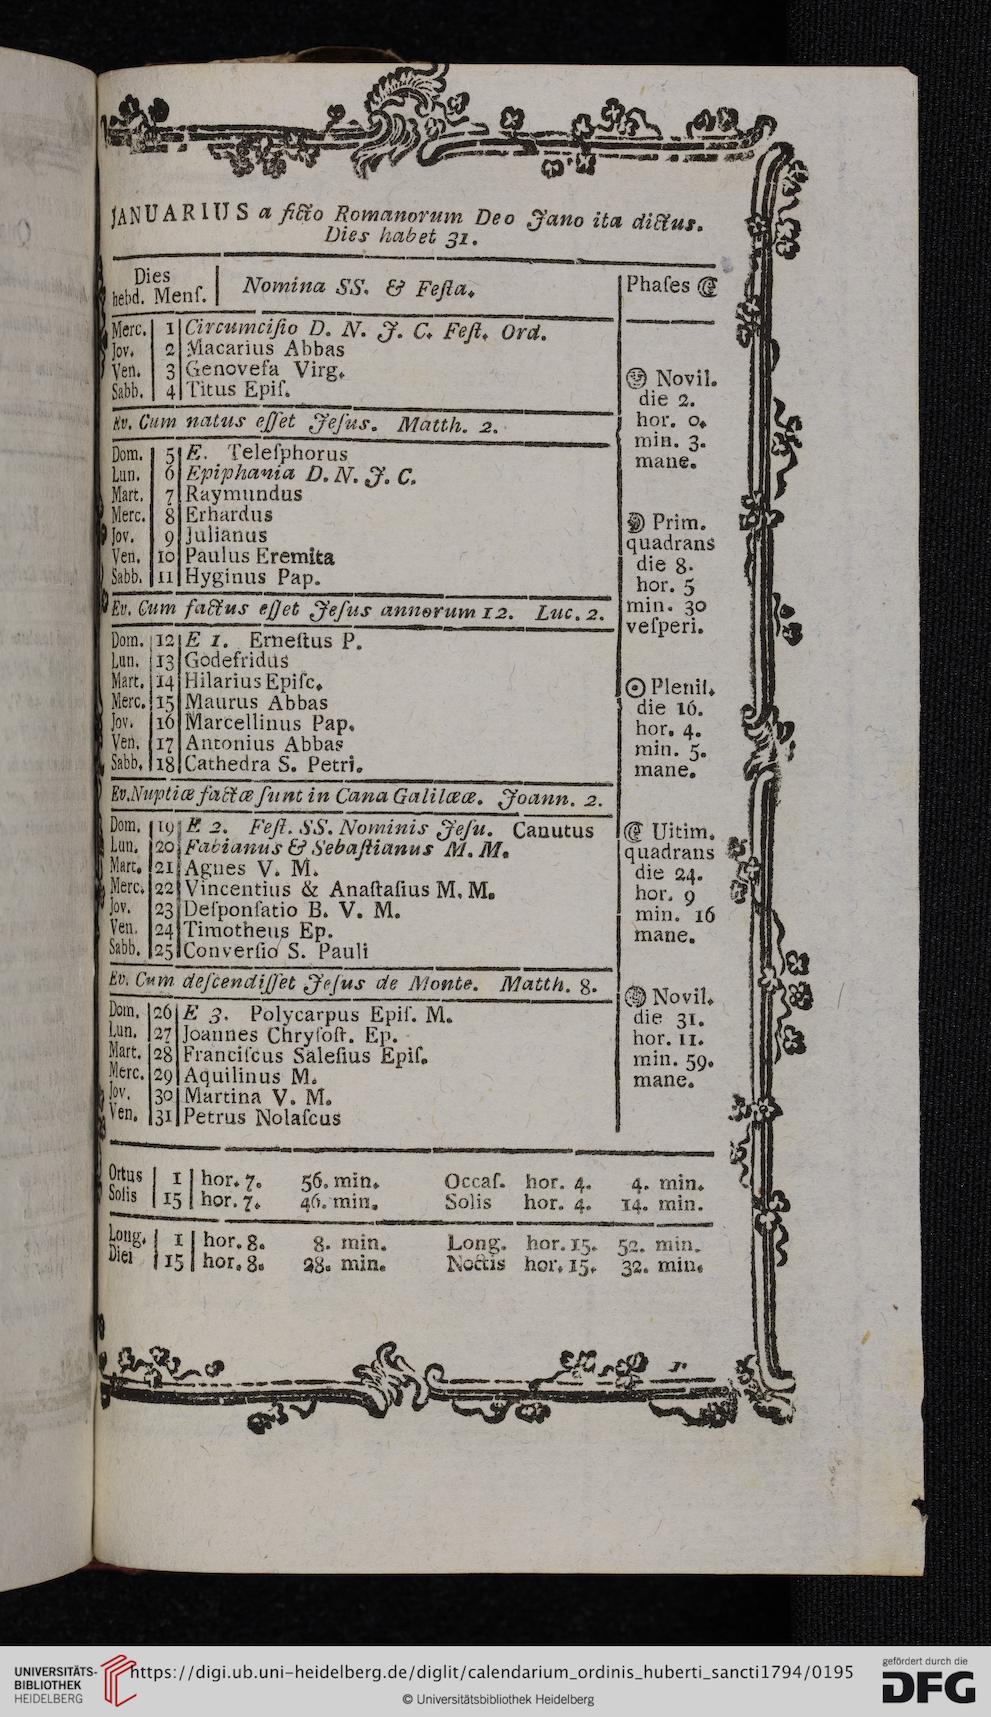 JANUARIUS a ficto Romanorum Deo Jano ita dictus.
Dies habet 31.
Dies
hebd. Menſ. Nomina SS. & Feſta.
Merc. 1 Circumciſio D. N. J. C. Feſt. Ord.
Jov. 2 Macarius Abbas
Ven. 3 Genoveſa Virg.
Sabb. 4 Titus Epiſ.
Ev. Cum natus eſſet Jeſus. Matth. 2.
Dom. 5 E. Teleſphorus
Lun. 6 Epiphania D. N. J. C.
Mart. 7 Raymundus
Merc. 8 Erhardus
Jov. 9 Julianus
Ven. 10 Paulus Eremita
Sabb. 11 Hyginus Pap.
Ev. Cum factus eſſet Jeſus annorum 12. Luc. 2.
Dom. 12 E 1. Erneſtus P.
Lun. 13 Godefridus
Mart. 14 Hilarius Epiſc.
Merc. 15 Maurus Abbas
Jov. 16 Marcellinus Pap.
Ven. 17 Antonius Abbas
Sabb. 18 Cathedra S. Petri.
Ev. Nuptiæ factæ ſunt in Cana Galilææ. Joann. 2.
Dom. 19 E 2. Feſt. SS. Nominis Jeſu. Canutus
Lun. 20 Fabianus & Sebaſtianus M. M.
Mart. 21 Agnes V. M.
Merc. 22 Vincentius & Anaſtaſius M. M.
Jov. 23 Deſponſatio B. V. M.
Ven. 24 Timotheus Ep.
Sabb. 25 Converſio S. Pauli
Ev. Cum deſcendiſſet Jeſus de Monte. Matth. 8.
Dom. 26 E 3. Polycarpus Epiſ. M.
Lun. 27 Joannes Chryſoſt. Ep.
Mart. 28 Franciſcus Saleſius Epiſ.
Merc. 29 Aquilinus M.
Jov. 30 Martina V. M.
Ven. 31 Petrus Nolaſcus
Phaſes ☾
Novil.
die 2.
hor. 0.
min. 3.
mane.
Prim.
quadrans
die 8.
hor. 5
min. 30
veſperi.
Plenil.
die 16.
hor. 4.
min. 5.
mane.
Ultim.
quadrans
die 24.
hor. 9
min. 16
mane.
Novil.
die 31.
hor. 11.
min. 59.
mane.
Ortus 1 hor. 7. 56. min. Occaſ. hor. 4. 4. min.
Solis 15 hor. 7. 46. min. Solis hor. 4. 14. min.
Long. 1 hor. 8. 8. min. Long. hor. 15. 52. min.
Diei 15 hor. 8. 28. min. Noctis hor. 15. 32. min.
UNIVERSITÄTS-
BIBLIOTHEK
HEIDELBERG
https://digi.ub.uni-heidelberg.de/diglit/calendarium_ordinis_huberti_sancti1794/0195
© Universitätsbibliothek Heidelberg
gefördert durch die
DFG